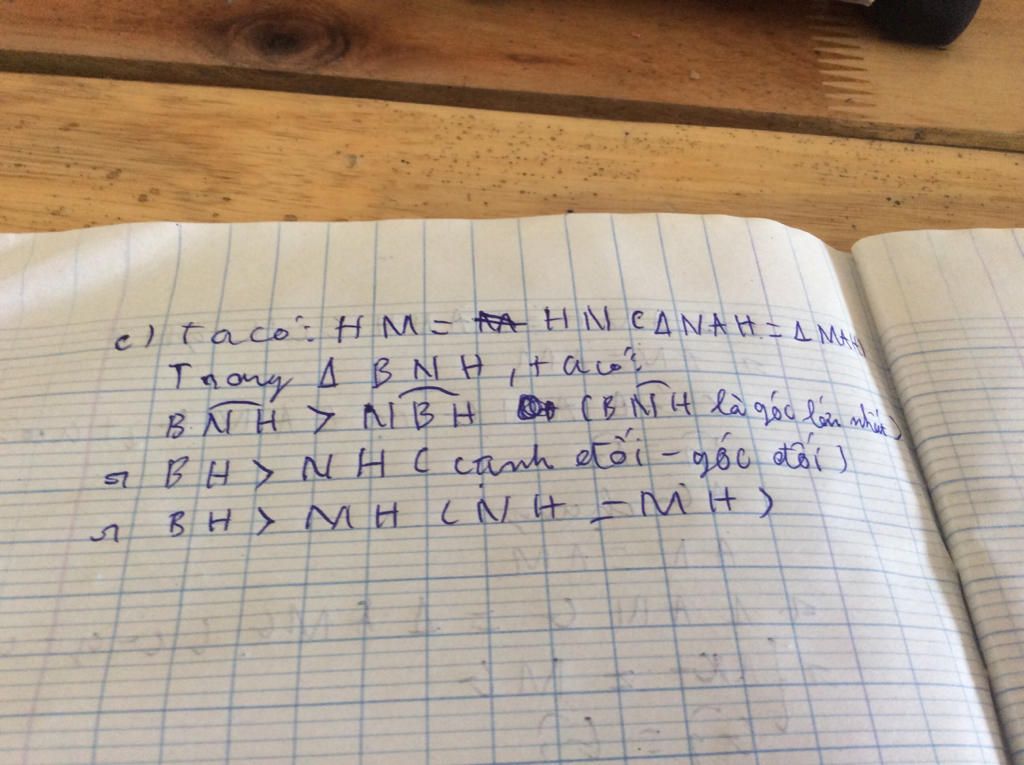 c) Ta có: HM = HN (Δ NAH = Δ MAH)
Trong Δ BNH, ta có:
BNH > NBH (BNH là góc lớn nhất)
=> BH > NH (cạnh đối - góc đối)
=> BH > MH (NH = MH)